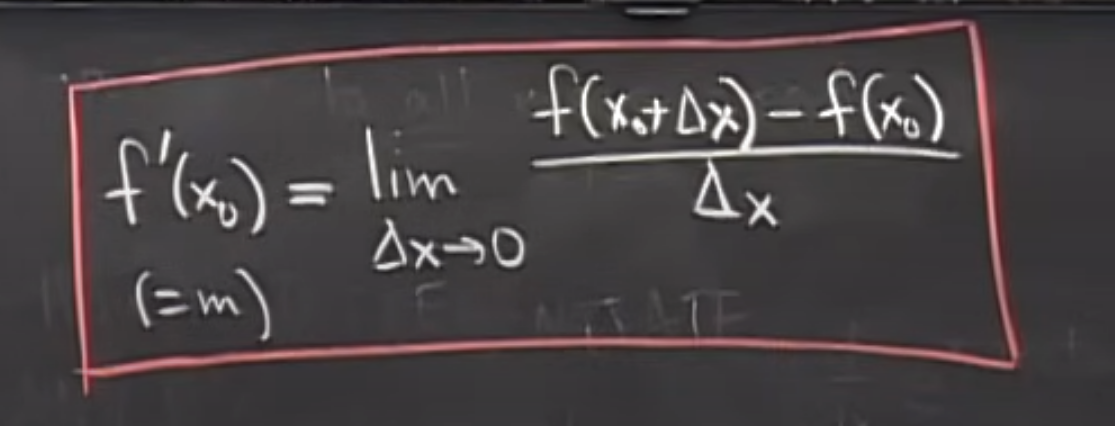 f'(x₀) = lim_{Δx→0} \frac{f(x₀+Δx) - f(x₀)}{Δx}
(=m)